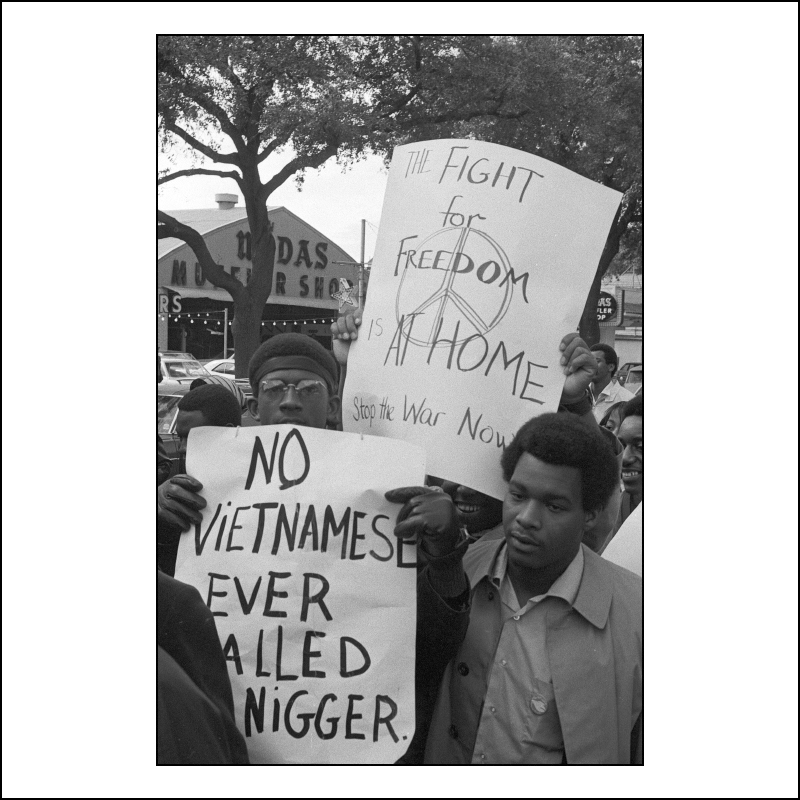 MIDAS
MUFFLER SHOP
RS
THE FIGHT
for
FREEDOM
IS AT HOME
Stop the War Now
AS
FLER
OP
NO
VIETNAMESE
EVER
ALLED
NIGGER.